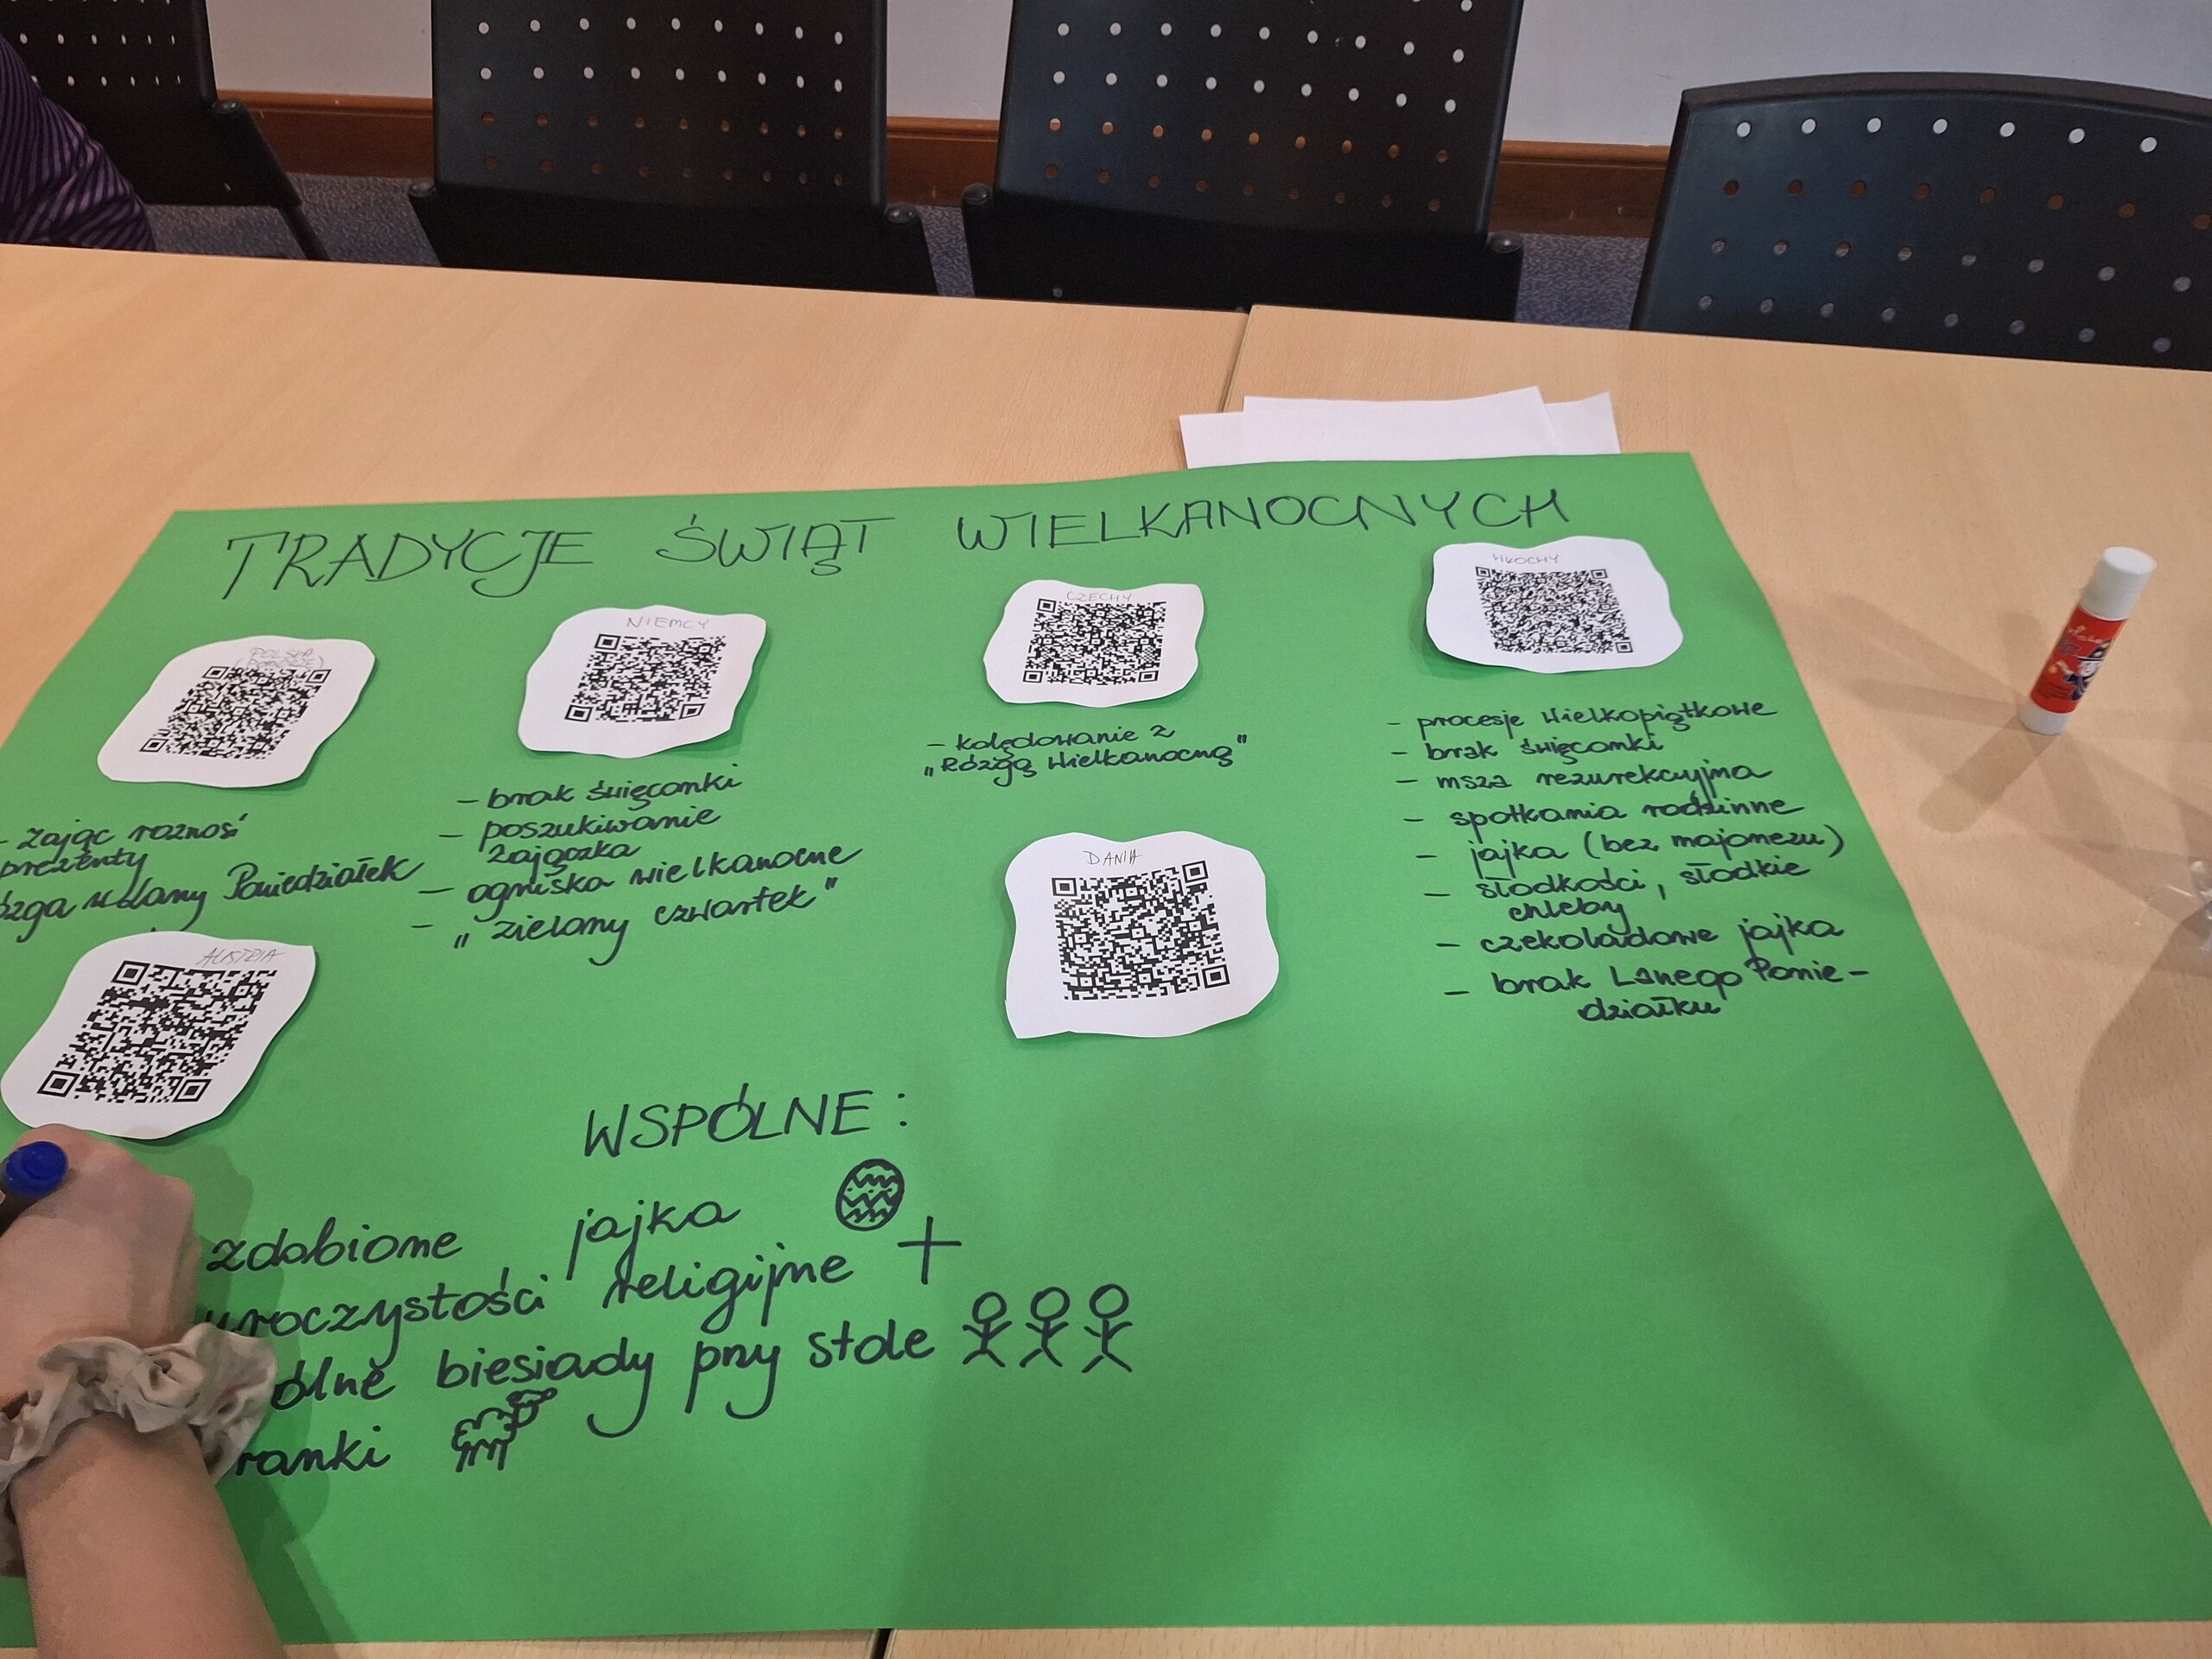 TRADYCJE ŚWIĄT WIELKANOCNYCH
POLSKA
(POMORZE)
- zając roznosi
prezenty
w lany Poniedziałek
NIEMCY
- brak święconki
- poszukiwanie
zajączka
- ogniska wielkanocne
- "zielony czwartek"
CZECHY
- kolędowanie z
"Rózgą Wielkanocną"
WŁOCHY
- procesje wielkopiątkowe
- brak święconki
- msza rezurekcyjna
- spotkania rodzinne
- jajka (bez majonezu)
- słodkości, słodkie
chleby
- czekoladowe jajka
- brak Lanego Ponie-
działku
AUSTRIA
DANIA
WSPÓLNE:
zdobione jajka
uroczystości religijne
ólne biesiady przy stole
ranki